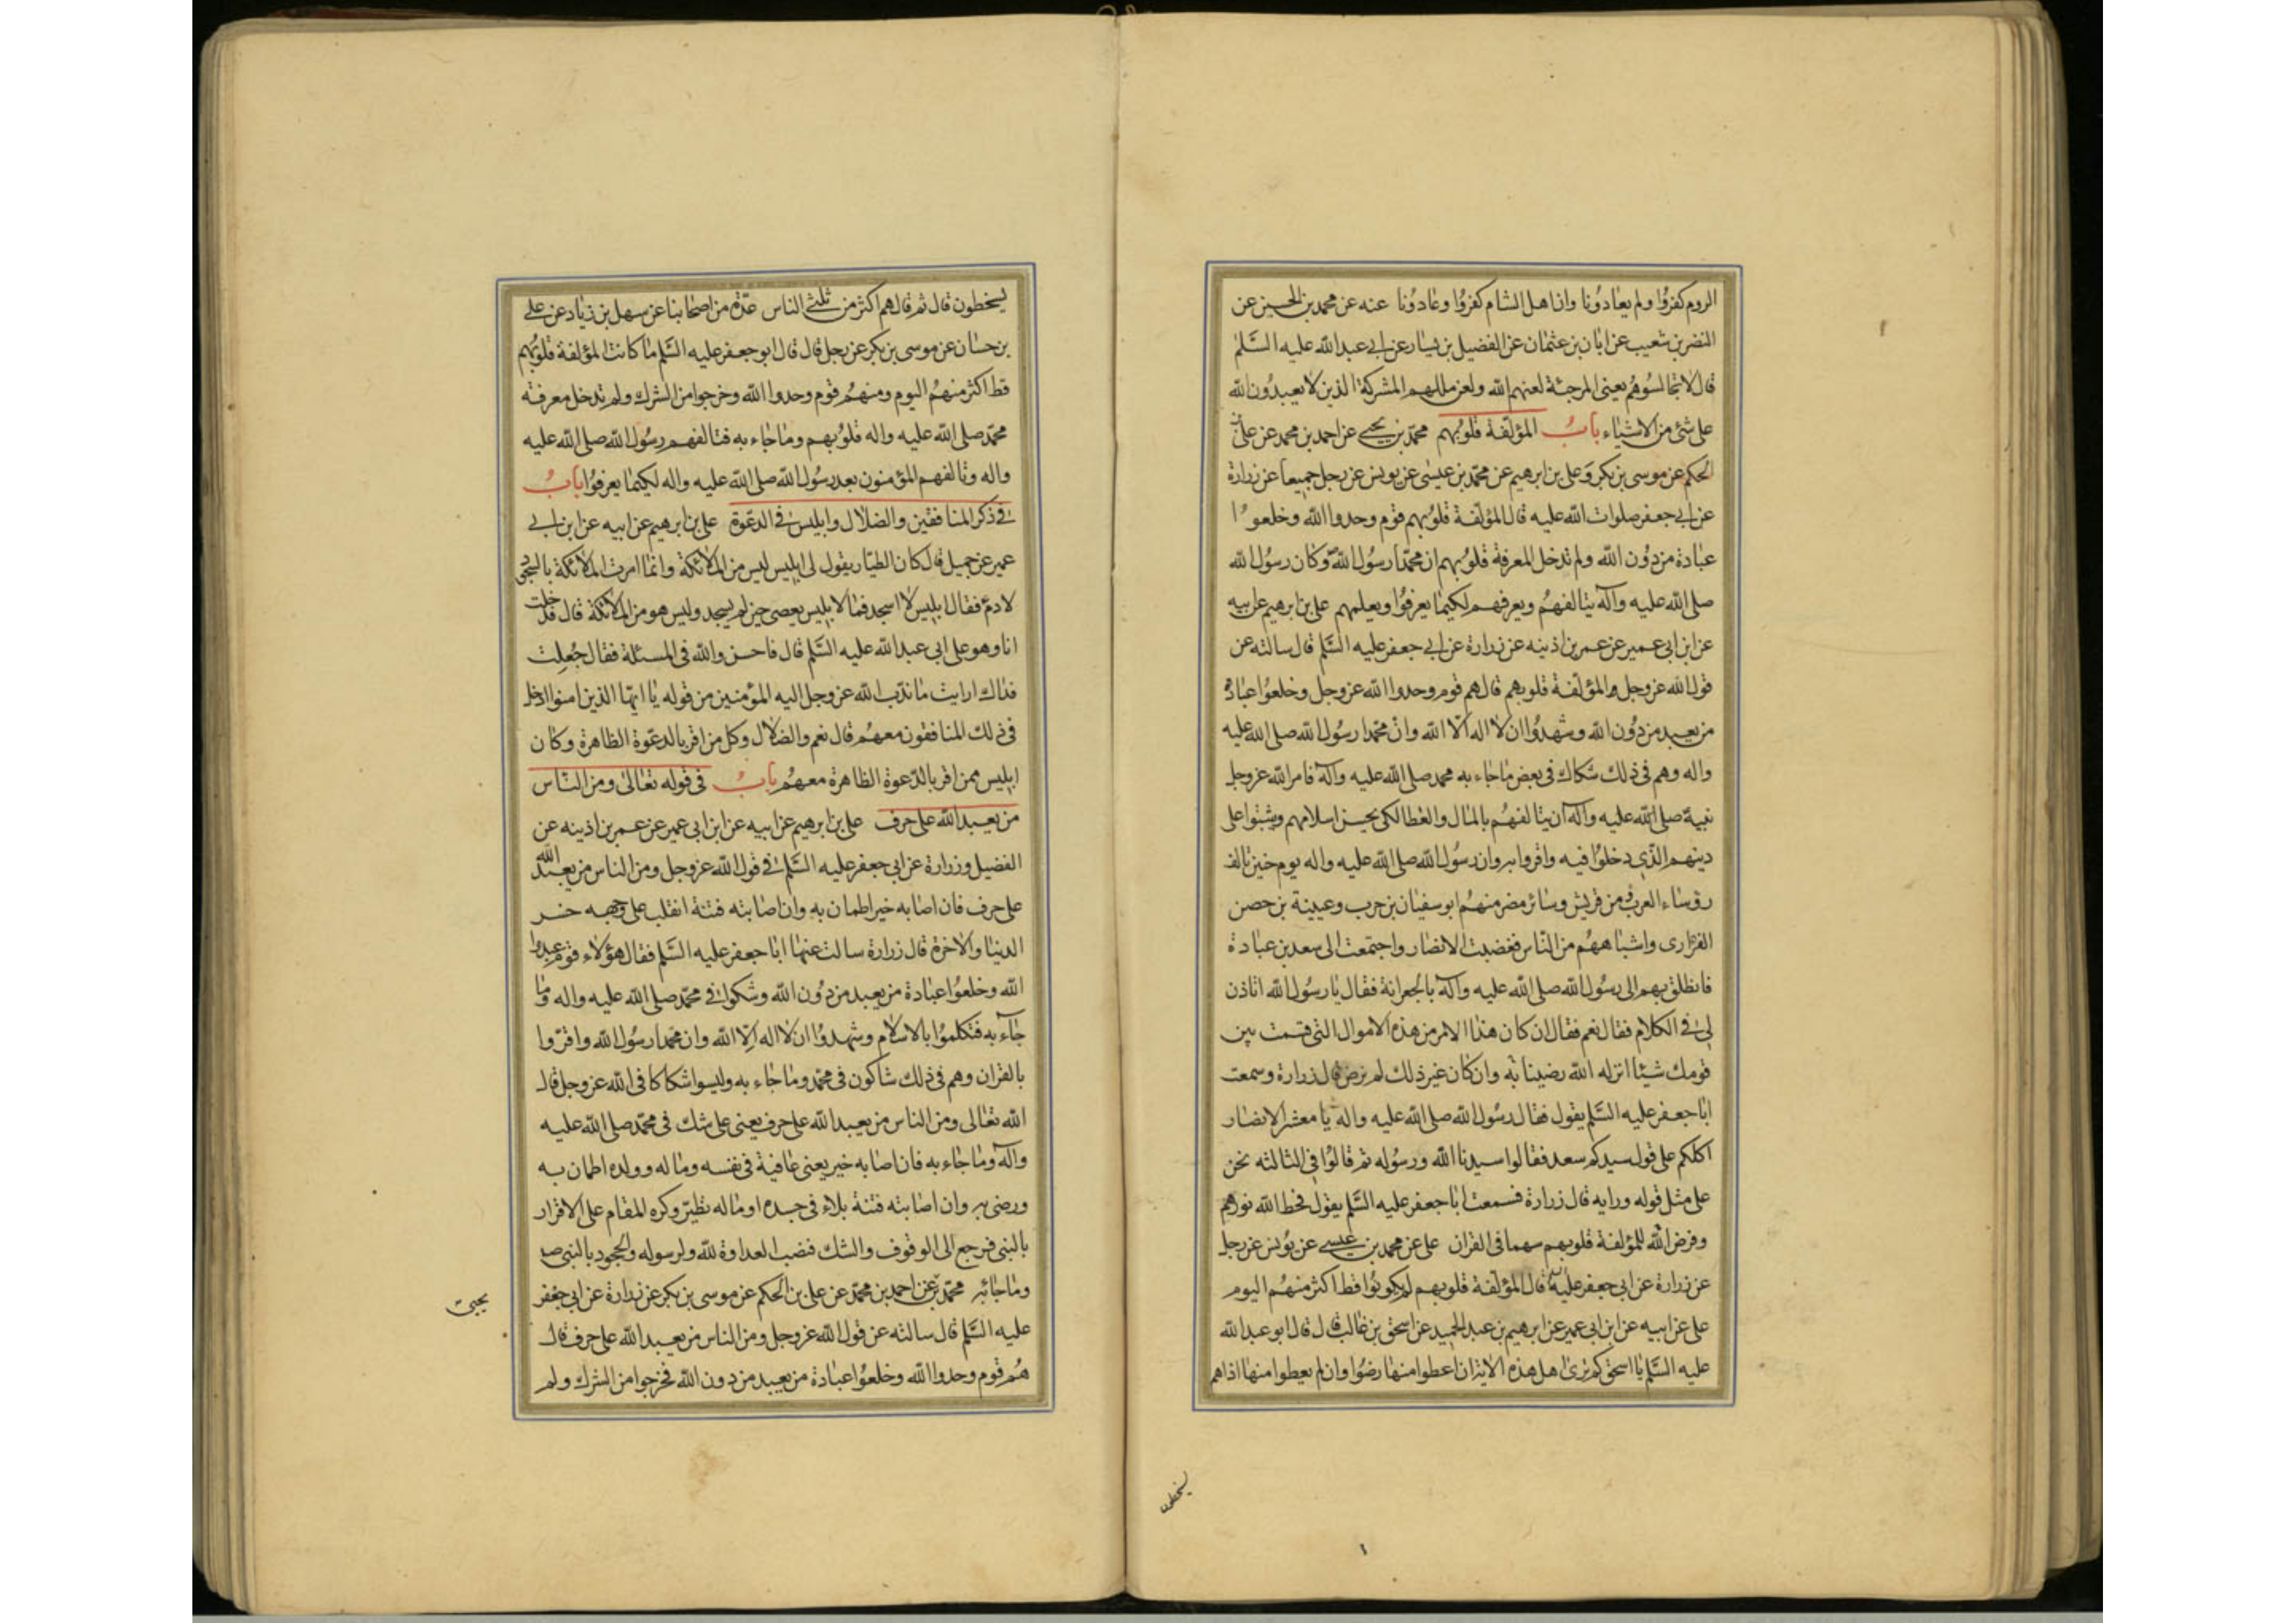 الروم كفروا ولم يعادونا وان اهل الشام كفروا وعادونا عنه عن محمد بن الحسن عن
النضر بن شعيب عن ابان بن عثمان عن الفضيل بن يسار عن ابي عبدالله عليه السلم
قال لا تجالسوهم يعني المرجئة لعنهم الله ولعن مللهم المشركة الذين لا يعبدون الله
على شئ من الاشياء باب المؤلفة قلوبهم محمد بن يحيى عن احمد بن محمد عن علي بن
الحكم عن موسى بن بكر وعلي بن ابرهيم عن محمد بن عيسى عن يونس عن رجل جميعا عن زرارة
عن ابي جعفر صلوات الله عليه قال المؤلفة قلوبهم قوم وحدوا الله وخلعوا
عبادة من دون الله ولم تدخل المعرفة قلوبهم ان محمدا رسول الله وكان رسول الله
صلى الله عليه وآله يتالفهم ويعرفهم لكيما يعرفوا ويعلمهم علي بن ابرهيم عن ابيه
عن ابن ابي عمير عن عمر بن اذينه عن زرارة عن ابي جعفر عليه السلم قال سالته عن
قول الله عز وجل والمؤلفة قلوبهم قال هم قوم وحدوا الله عز وجل وخلعوا عبادة
من يعبد من دون الله وشهدوا ان لا اله الا الله وان محمدا رسول الله صلى الله عليه
واله وهم في ذلك شكاك في بعض ما جاء به محمد صلى الله عليه وآله فامر الله عز وجل
نبيه صلى الله عليه وآله ان يتالفهم بالمال والعطا لكي يحسن اسلامهم ويثبتوا على
دينهم الذي دخلوا فيه واقروا به وان رسول الله صلى الله عليه واله يوم حنين تالف
رؤساء العرب من قريش وسائر مضر منهم ابو سفيان بن حرب وعيينة بن حصن
الفزارى واشباههم من الناس فغضبت الانصار واجتمعت الى سعد بن عبادة
فانطلق بهم الى رسول الله صلى الله عليه وآله بالجعرانة فقال يا رسول الله اتاذن
لي في الكلام فقال نعم فقال ان كان هذا الامر من هذه الاموال التي قسمت بين
قومك شيئا انزله الله رضينا به وان كان غير ذلك لم نرض قال زرارة وسمعت
ابا جعفر عليه السلم يقول فقال رسول الله صلى الله عليه واله يا معشر الانصار
اكلكم على قول سيدكم سعد فقالوا سيدنا الله ورسوله ثم قالوا في الثالثه نحن
على مثل قوله ورايه قال زرارة فسمعت ابا جعفر عليه السلم يقول فحط الله نورهم
وفرض الله للمؤلفة قلوبهم سهما في القران علي عن محمد بن عيسى عن يونس عن رجل
عن زرارة عن ابي جعفر عليه قال المؤلفة قلوبهم لم يكونوا قط اكثر منهم اليوم
علي عن ابيه عن ابن ابي عمير عن ابرهيم بن عبد الحميد عن اسحق بن غالب قال قال ابو عبدالله
عليه السلم يا اسحق كم ترى اهل هذه الاية ان اعطوا منها رضوا وان لم يعطوا منها اذا هم
يسخطون
يسخطون قال ثم قال هم اكثر من ثلثي الناس عدة من اصحابنا عن سهل بن زياد عن علي
بن حسان عن موسى بن بكر عن رجل قال قال ابو جعفر عليه السلم ما كانت المؤلفة قلوبهم
قط اكثر منهم اليوم ومنهم قوم وحدوا الله وخرجوا من الشرك ولم تدخل معرفة
محمد صلى الله عليه واله قلوبهم وما جاء به فتالفهم رسول الله صلى الله عليه
واله وتالفهم المؤمنون بعد رسول الله صلى الله عليه واله لكيما يعرفوا باب
في ذكر المنافقين والضلال وابليس في الدعوة علي بن ابرهيم عن ابيه عن ابن ابي
عمير عن جميل قال كان الطيار يقول لي ابليس ليس من الملائكة وانما امرت الملائكة بالسجود
لادم فقال ابليس لا اسجد فما لابليس يعصى حين لم يسجد وليس هو من الملائكة قال فدخلت
انا وهو على ابي عبدالله عليه السلم قال فاحسن والله في المسئلة فقال جعلت
فداك ارايت ما ندب الله عز وجل اليه المؤمنين من قوله يا ايها الذين امنوا ادخل
في ذلك المنافقون معهم قال نعم والضلال وكل من اقر بالدعوة الظاهرة وكان
ابليس ممن اقر بالدعوة الظاهرة معهم باب في قوله تعالى ومن الناس
من يعبد الله على حرف علي بن ابرهيم عن ابيه عن ابن ابي عمير عن عمر بن اذينه عن
الفضيل وزرارة عن ابي جعفر عليه السلم في قول الله عز وجل ومن الناس من يعبد الله
على حرف فان اصابه خير اطمان به وان اصابته فتنة انقلب على وجهه خسر
الدنيا والاخرة قال زرارة سالت عنها ابا جعفر عليه السلم فقال هؤلاء قوم عبدوا
الله وخلعوا عبادة من يعبد من دون الله وشكوا في محمد صلى الله عليه واله وما
جاء به فتكلموا بالاسلام وشهدوا ان لا اله الا الله وان محمدا رسول الله واقروا
بالقران وهم في ذلك شاكون في محمد وما جاء به وليسوا شكاكا في الله عز وجل قال
الله تعالى ومن الناس من يعبد الله على حرف يعني على شك في محمد صلى الله عليه
وآله وما جاء به فان اصابه خير يعني عافية في نفسه وماله وولده اطمان به
ورضي به وان اصابته فتنة بلاء في جسده او ماله تطير وكره المقام على الاقرار
بالنبي فرجع الى الوقوف والشك فنصب العداوة لله ولرسوله والجحود بالنبي ص
وما جاء به محمد بن عن احمد بن محمد عن علي بن الحكم عن موسى بن بكر عن زرارة عن ابي جعفر
يحيى
عليه السلم قال سالته عن قول الله عز وجل ومن الناس من يعبد الله على حرف قال
هم قوم وحدوا الله وخلعوا عبادة من يعبد من دون الله فخرجوا من الشرك ولم